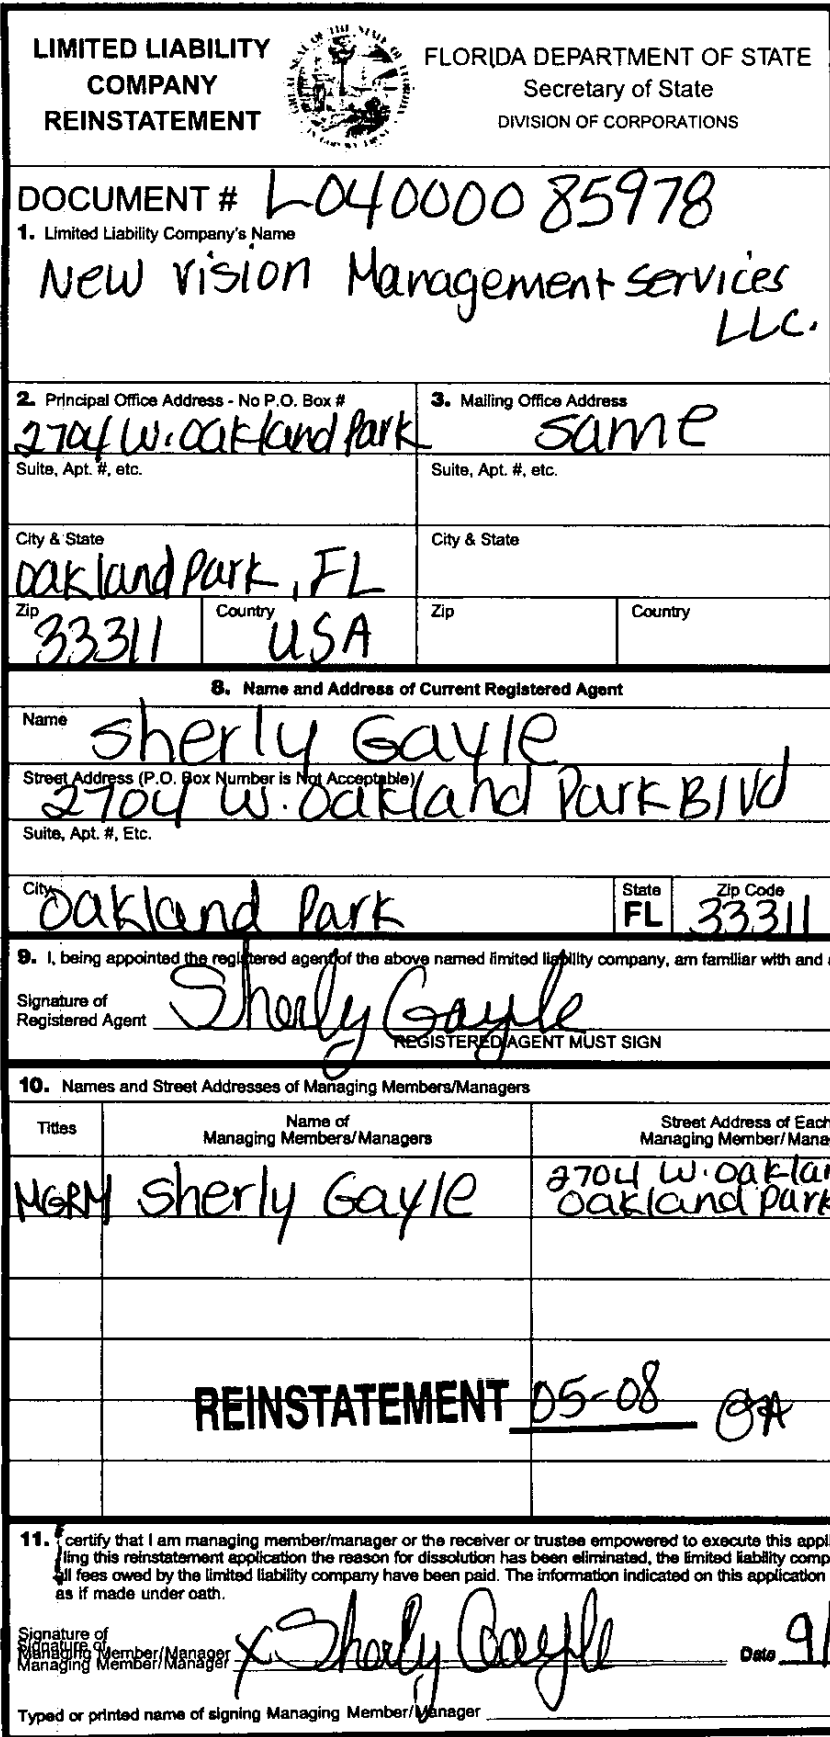 LIMITED LIABILITY
COMPANY
REINSTATEMENT
FLORIDA DEPARTMENT OF STATE
Secretary of State
DIVISION OF CORPORATIONS
DOCUMENT # L04000085978
1. Limited Liability Company's Name
New Vision Management Services
LLC.
2. Principal Office Address - No P.O. Box #
2704 W. Oakland Park
3. Mailing Office Address
same
Suite, Apt. #, etc.
Suite, Apt. #, etc.
City & State
Oakland Park, FL
City & State
Zip
33311
Country
USA
Zip
Country
8. Name and Address of Current Registered Agent
Name
Sherly Gayle
Street Address (P.O. Box Number is Not Acceptable)
2704 W. Oakland Park Blvd
Suite, Apt. #, Etc.
City
Oakland Park
State
FL
Zip Code
33311
9. I, being appointed the registered agent of the above named limited liability company, am familiar with and
Signature of
Registered Agent Sherly Gayle
REGISTERED AGENT MUST SIGN
10. Names and Street Addresses of Managing Members/Managers
Titles
Name of
Managing Members/Managers
Street Address of Each
Managing Member/Mana
MGRM Sherly Gayle
2704 W. Oakla
Oakland Park
REINSTATEMENT 05-08
11. I certify that I am managing member/manager or the receiver or trustee empowered to execute this appl
ling this reinstatement application the reason for dissolution has been eliminated, the limited liability comp
all fees owed by the limited liability company have been paid. The information indicated on this application
as if made under oath.
Signature of
Signature of
Managing Member/Manager
Managing Member/Manager X Sherly Gayle Date 9/
Typed or printed name of signing Managing Member/Manager